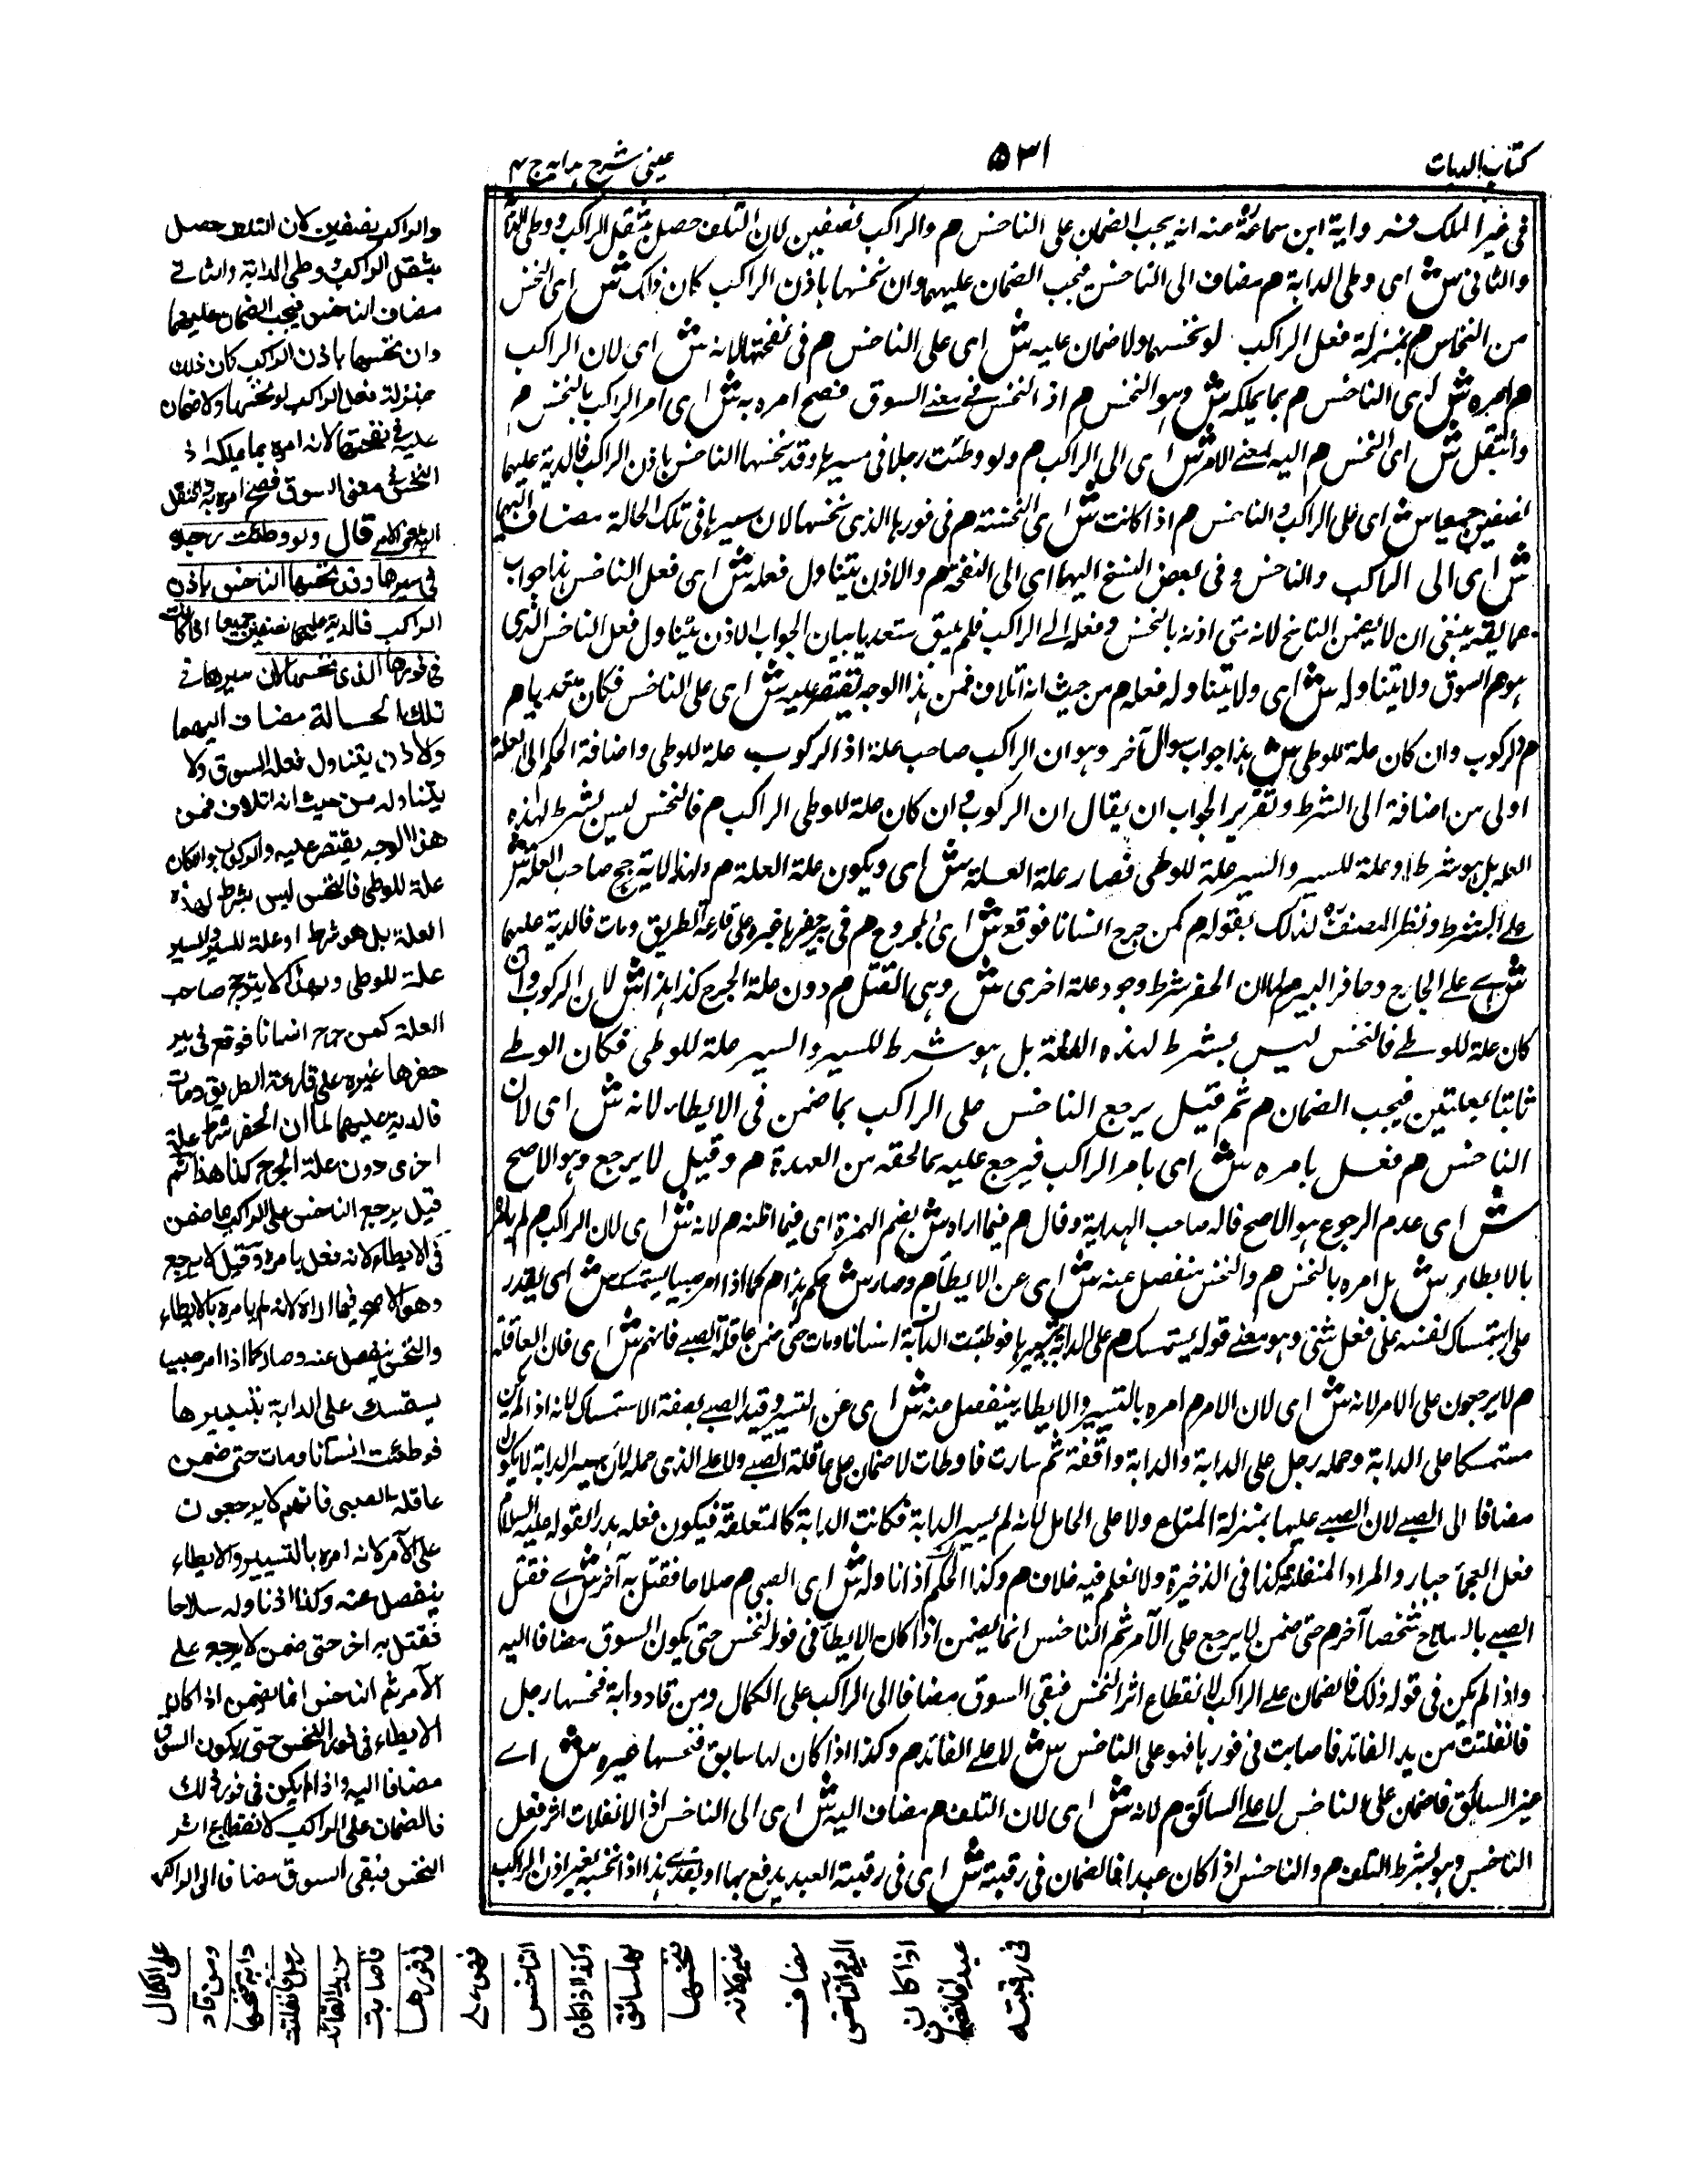 كتاب الديات
۵۳۱
عينى شرح هدايه ج ۴
فى غير الملك وفى رواية ابن سماعة عنه انه يجب الضمان على الناخس م والراكب نصفين لان التلف حصل بثقل الراكب ووطى الدابة
والثانى ش اى وطى الدابة م مضاف الى الناخس فيجب الضمان عليهما وان نخسها باذن الراكب كان ذلك ش اى النخس
من النخاس م بمنزلة فعل الراكب لو نخسها ولا ضمان عليه ش اى على الناخس م فى نفحتها لانه ش اى لان الراكب
م امره ش اى الناخس م بما يملكه ش وهو النخس م اذ النخس فى معنى السوق فصح امره به ش اى امر الراكب بالنخس م
وانتقل ش اى النخس م اليه لمعنى الامر ش اى الى الراكب م ولو وطئت رجلا فى سيرها وقد نخسها الناخس باذن الراكب فالدية عليهما
نصفين جميعا ش اى على الراكب والناخس م اذا كانت ش اى النخسة م فى فورها الذى نخسها لان سيرها فى تلك الحالة مضاف اليهما
ش اى الى الراكب والناخس وفى بعض النسخ اليها اى الى النفحة م والاذن يتناول فعله ش اى فعل الناخس هذا جواب
عما يقال ينبغى ان لا يضمن الناخس لانه متى اذنه بالنخس وفعله الى الراكب فلم يبق متعديا بيان الجواب الاذن يتناول فعل الناخس الذى
هو م السوق ولا يتناوله ش اى ولا يتناوله فعله م من حيث انه اتلاف فمن هذا الوجه يقتصر عليه ش اى على الناخس فكان متعديا م
م والركوب وان كان علة للوطى ش هذا جواب سوال آخر وهو ان الراكب صاحب علة اذ الركوب علة للوطى واضافة الحكم الى العلة
اولى من اضافة الى الشرط وتقرير الجواب ان يقال ان الركوب وان كان علة للوطى الراكب م فالنخس ليس بشرط لهذه
العلة بل هو شرط او علة للسير والسير علة للوطى فصار علة العلة ش اى ويكون علة العلة م ولهذا لا يترجح صاحب العلة ش
على الشرط ونظر المصنف لذلك بقوله م كمن جرح انسانا فوقع ش اى المجروح م فى بير حفرها غيره على قارعة الطريق ومات فالدية عليهما
ش اى على الجارح وحافر البير م لما ان الحفر شرط وجود علة اخرى ش وهى القتل م دون علة الجرح كذا هذا ش لان الركوب وان
كان علة للوطى فالنخس ليس بشرط لهذه العلة بل هو شرط للسير والسير علة للوطى فكان الوطى
ثابتا بعلتين فيجب الضمان م ثم قيل يرجع الناخس على الراكب بما ضمن فى الايطاء لانه ش اى لان
الناخس م فعل بامره ش اى بامر الراكب فيرجع عليه بما لحقه من العهدة م وقيل لا يرجع وهو الاصح
ش اى عدم الرجوع هو الاصح قاله صاحب الهداية وقال م فيما اراه ش بضم الهمزة اى فيما اظنه م لانه ش اى لان الراكب م لم يامره
بالايطاء ش بل امره بالنخس م والنخس منفصل عنه ش اى عن الايطاء م وصار ش حكم هذا م كما اذا امر صبيا يستمسك ش اى يقدر
على استمساك نفسه على فعل شئى وهو معنى قوله يستمسك م على الدابة بتسييرها فوطئت الدابة انسانا ومات حتى ضمن عاقلة الصبى فانهم ش اى فان العاقلة
م لا يرجعون على الامر لانه ش اى لان الامر م امره بالتسيير والايطاء ينفصل عنه ش اى عن التسيير وقيد الصبى بصفة الاستمساك لانه اذا لم يكن
متمسكا على الدابة وحمله رجل على الدابة والدابة واقفة ثم سارت فاوطات لا ضمان على عاقلة الصبى ولا على الذى حمله لان سير الدابة لا يكون
مضافا الى الصبى لان الصبى عليها بمنزلة المتاع ولا على الحامل لانه لم يسير الدابة فكانت الدابة كالمتعلقة فيكون فعله هدرا لقوله عليه السلام
فعل العجماء جبار والمراد المنفلتة كذا فى الذخيرة ولا نعلم فيه خلاف م وكذا الحكم اذا ناوله ش اى الصبى م سلاحا فقتل به آخر ش اى فقتل
الصبى بالسلاح شخصا آخر م حتى ضمن لا يرجع على الآمر ثم الناخس انما يضمن اذا كان الايطاء فى فور النخس حتى يكون السوق مضافا اليه
واذا لم يكن فى فوله ذلك فالضمان على الراكب لانقطاع اثر النخس فبقى السوق مضافا الى الراكب على الكمال ومن قاد دابة فنخسها رجل
فانفلتت من يد القائد فاصابت فى فورها فهو على الناخس ش لا على القائد م وكذا اذا كان لها سايق فنخسها غيره ش اى
غير السائق فاضمان على الناخس لا على السائق م لانه ش اى لان التلف م مضاف اليه ش اى الى الناخس اذ الانفلات اثر فعل
الناخس وهو بشرط التلف م والناخس اذا كان عبدا فالضمان فى رقبته ش اى فى رقبة العبد يدفع بها او يفدى هذا اذا نخسه بغير اذن الراكب
والراكب نصفين كان التلف حصل
بثقل الراكب ووطى الدابة والثانى
مضاف الناخس فيجب الضمان عليهما
وان نخسها باذن الراكب كان ذلك
بمنزلة فعل الراكب لو نخسها ولا ضمان
عليه فى نفحتها لانه امره بما يملكه اذ
النخس فى معنى السوق فصح امره به وانتقل
اليه لمعنى الامر قال ولو وطئت رجلا
فى سيرها وقد نخسها الناخس باذن
الراكب فالدية عليهما نصفين جميعا اذا كانت
فى فورها الذى نخسها لان سيرها فى
تلك الحالة مضاف اليهما
ولاذن يتناول فعله السوق ولا
يتناوله من حيث انه اتلاف فمن
هذا الوجه يقتصر عليه والركوب وان كان
علة للوطى فالنخس ليس بشرط لهذه
العلة بل هو شرط او علة للسير والسير
علة للوطى وبهذا لا يترجح صاحب
العلة كمن جرح انسانا فوقع فى بير
حفرها غيره على قارعة الطريق ومات
فالدية عليهما لما ان الحفر شرط علة
اخرى دون علة الجرح كذا هذا ثم
قيل يرجع الناخس على الراكب بما ضمن
فى الايطاء لانه فعل بامره وقيل لا يرجع
وهو الاصح فيما اراه لانه لم يامره بالايطاء
والنخس ينفصل عنه وصار كما اذا امر صبيا
يستمسك على الدابة بتسييرها
فوطئت انسانا ومات حتى ضمن
عاقلة الصبى فانهم لا يرجعون
على الآمر لانه امره بالتسيير والايطاء
ينفصل عنه وكذا اذا ناوله سلاحا
فقتل به اخر حتى ضمن لا يرجع على
الآمر ثم الناخس انما يضمن اذا كان
الايطاء فى فور النخس حتى يكون السوق
مضافا اليه واذا لم يكن فى فور ذلك
فالضمان على الراكب لانقطاع اثر
النخس فبقى السوق مضافا الى الراكب
على الكمال
ومن قاد
دابة فنخسها
رجل فانفلتت
من يد القائد
فاصابت
فى فورها
فهو على
الناخس
وكذا اذا كان
لها سائق
فنخسها
غيره لانه
مضاف
اليه والناخس
اذا كان
عبدا فالضمان
فى رقبته